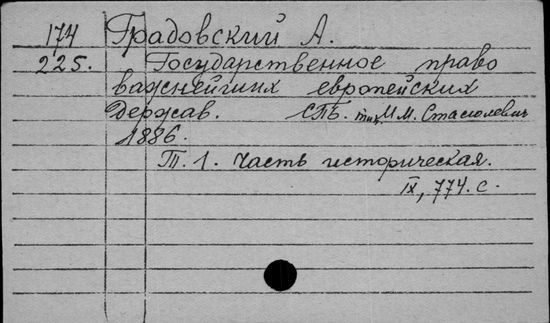 174 Градовский А.
225. Государственное право
важнейших европейских
держав. СПБ. тип. М.М. Стасюлевич
1886.
Т. 1. Часть историческая.
IX, 774. с.